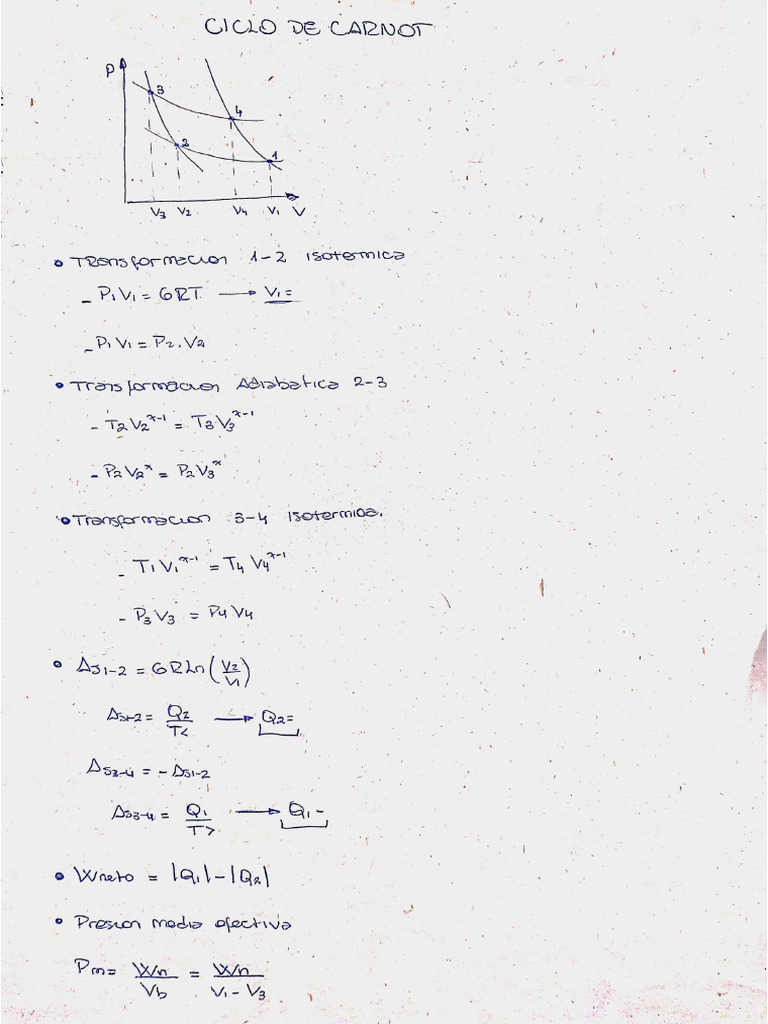 CICLO DE CARNOT
P
3
4
2
1
V3 V2 V4 V1 V
• Transformacion 1-2 isotermica
- P1V1 = GRT → V1=
- P1V1 = P2.V2
• Transformacion Adiabatica 2-3
- T2V2^x-1 = T3V3^x-1
- P2V2^x = P2V3^x
• Transformacion 3-4 isotermica.
- T1V1^x-1 = T4V4^x-1
- P3V3 = P4V4
• ΔS1-2 = GRLn(V2/V1)
ΔS1-2 = Q2/T< → Q2=
ΔS3-4 = - ΔS1-2
ΔS3-4 = Q1/T> → Q1-
• Wneto = |Q1|-|Q2|
• Presion media efectiva
Pm= Wn/Vb = Wn/V1-V3